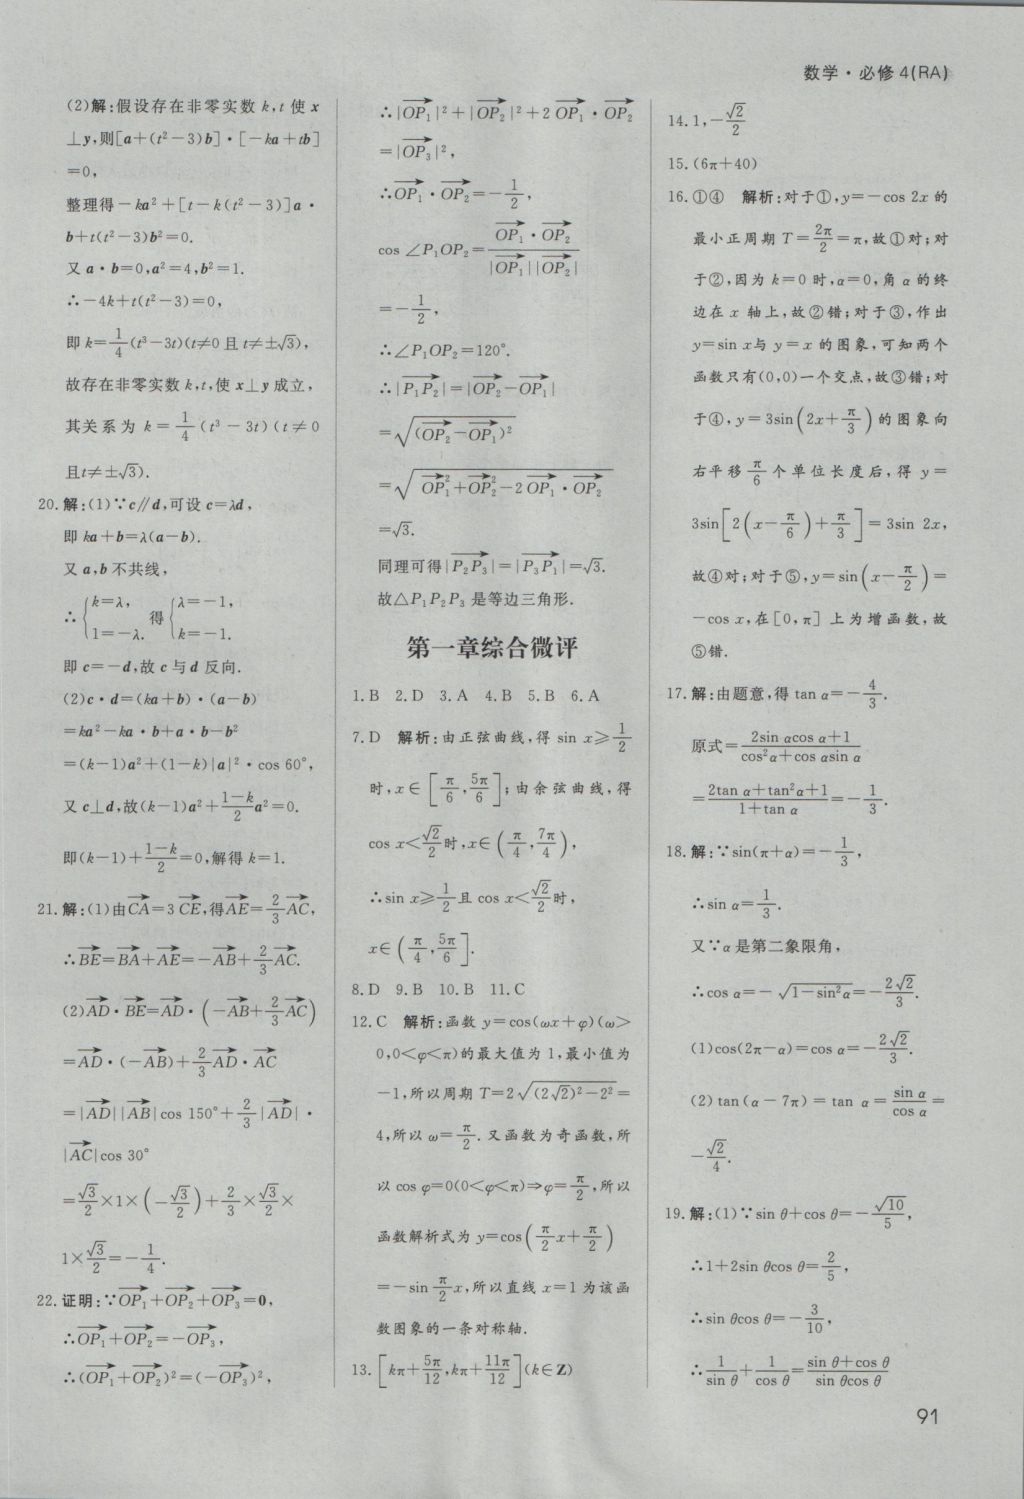 数学·必修4(RA)
(2)解:假设存在非零实数 k,t 使 x
⊥y,则[a+(t²-3)b]·[-ka+tb]
=0,
整理得-ka²+[t-k(t²-3)]a·
b+t(t²-3)b²=0.
又 a·b=0,a²=4,b²=1.
∴-4k+t(t²-3)=0,
即 k=1/4(t³-3t)(t≠0 且 t≠±√3),
故存在非零实数 k,t,使 x⊥y 成立,
其关系为 k=1/4(t³-3t)(t≠0
且t≠±√3).
20.解:(1)∵c∥d,可设 c=λd,
即 ka+b=λ(a-b).
又 a,b 不共线,
∴{k=λ, 1=-λ. 得{λ=-1, k=-1.
即 c=-d,故 c 与 d 反向.
(2)c·d=(ka+b)·(a-b)
=ka²-ka·b+a·b-b²
=(k-1)a²+(1-k)|a|²·cos 60°,
又 c⊥d,故(k-1)a²+(1-k)/2 a²=0.
即(k-1)+(1-k)/2=0,解得 k=1.
21.解:(1)由CA→=3CE→,得AE→=2/3 AC→,
∴BE→=BA→+AE→=-AB→+2/3 AC→.
(2)AD→·BE→=AD→·(-AB→+2/3 AC→)
=AD→·(-AB→)+2/3 AD→·AC→
=|AD→||AB→|cos 150°+2/3|AD→|·
|AC→|cos 30°
=√3/2×1×(-√3/2)+2/3×√3/2×
1×√3/2=-1/4.
22.证明:∵OP₁→+OP₂→+OP₃→=0,
∴OP₁→+OP₂→=-OP₃→,
∴(OP₁→+OP₂→)²=(-OP₃→)²,
∴|OP₁→|²+|OP₂→|²+2OP₁→·OP₂→
=|OP₃→|²,
∴OP₁→·OP₂→=-1/2,
cos∠P₁OP₂=(OP₁→·OP₂→)/(|OP₁→||OP₂→|)
=-1/2,
∴∠P₁OP₂=120°.
∴|P₁P₂→|=|OP₂→-OP₁→|
=√((OP₂→-OP₁→)²)
=√(OP₁→²+OP₂→²-2OP₁→·OP₂→)
=√3.
同理可得|P₂P₃→|=|P₃P₁→|=√3.
故△P₁P₂P₃ 是等边三角形.
第一章综合微评
1.B 2.D 3.A 4.B 5.B 6.A
7.D 解析:由正弦曲线,得 sin x≥1/2
时,x∈[π/6,5π/6];由余弦曲线,得
cos x<√2/2时,x∈(π/4,7π/4),
∴sin x≥1/2且 cos x<√2/2时,
x∈(π/4,5π/6].
8.D 9.B 10.B 11.C
12.C 解析:函数 y=cos(ωx+φ)(ω>
0,0<φ<π)的最大值为 1,最小值为
-1,所以周期 T=2√((2√2)²-2²)=
4,所以 ω=π/2.又函数为奇函数,所
以 cos φ=0(0<φ<π)⇒φ=π/2,所以
函数解析式为 y=cos(π/2 x+π/2)
=-sin π/2 x,所以直线 x=1 为该函
数图象的一条对称轴.
13.[kπ+5π/12,kπ+11π/12](k∈Z)
14.1,-√2/2
15.(6π+40)
16.①④ 解析:对于①,y=-cos 2x 的
最小正周期 T=2π/2=π,故①对;对
于②,因为 k=0 时,α=0,角 α 的终
边在 x 轴上,故②错;对于③,作出
y=sin x与 y=x 的图象,可知两个
函数只有(0,0)一个交点,故③错;对
于④,y=3sin(2x+π/3)的图象向
右平移π/6个单位长度后,得 y=
3sin[2(x-π/6)+π/3]=3sin 2x,
故④对;对于⑤,y=sin(x-π/2)=
-cos x,在[0,π]上为增函数,故
⑤错.
17.解:由题意,得 tan α=-4/3.
原式=(2sin αcos α+1)/(cos²α+cos αsin α)
=(2tan α+tan²α+1)/(1+tan α)=-1/3.
18.解:∵sin(π+α)=-1/3,
∴sin α=1/3.
又∵α是第二象限角,
∴cos α=-√(1-sin²α)=-2√2/3.
(1)cos(2π-α)=cos α=-2√2/3.
(2)tan(α-7π)=tan α=sin α/cos α=
-√2/4.
19.解:(1)∵sin θ+cos θ=-√10/5,
∴1+2sin θcos θ=2/5,
∴sin θcos θ=-3/10,
∴1/sin θ+1/cos θ=(sin θ+cos θ)/(sin θcos θ)
91